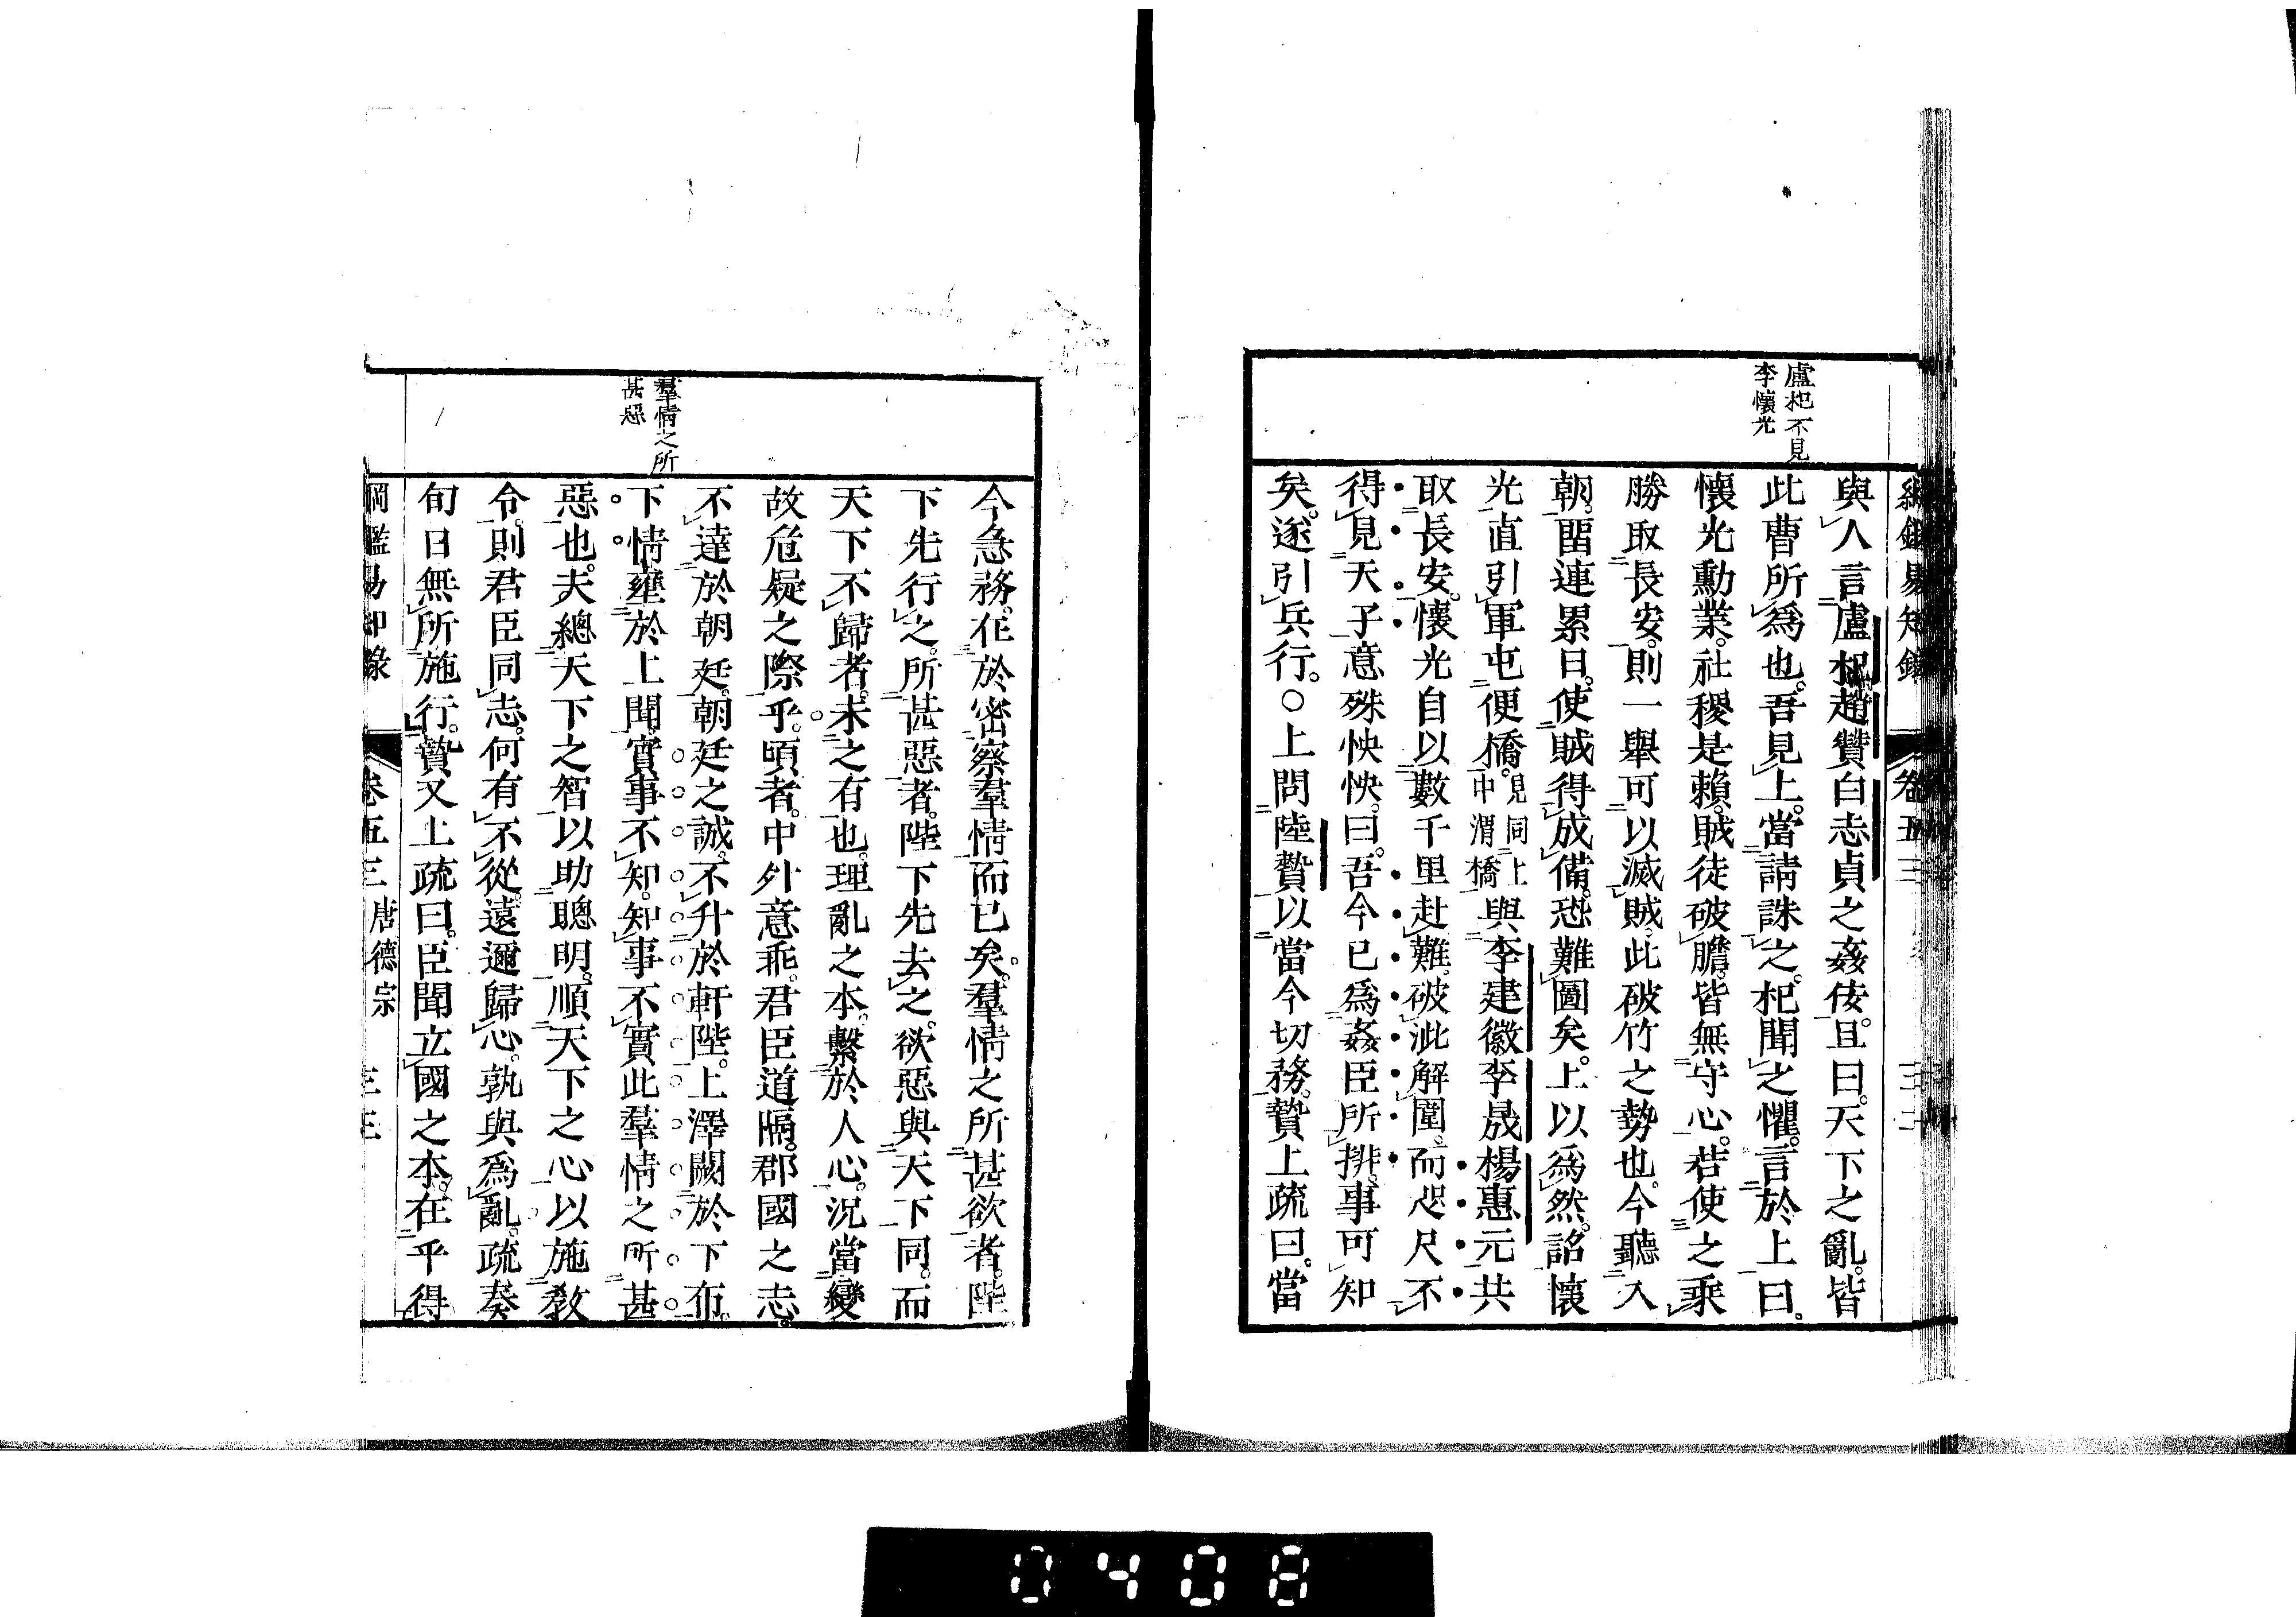 綱鑑易知錄 卷五三
盧杞不見
李懷光
與人言盧杞趙贊白志貞之姦佞。且曰。天下之亂。皆
此曹所爲也。吾見上。當請誅之。杞聞之懼。言於上曰。
懷光勳業。社稷是賴。賊徒破膽。皆無守心。若使之乘
勝取長安。則一舉可以滅賊。此破竹之勢也。今聽入
朝。畱連累日。使賊得成備。恐難圖矣。上以爲然。詔懷
光直引軍屯便橋。見同上中渭橋與李建徽李晟楊惠元共
取長安。懷光自以數千里赴難。破泚解圍。而咫尺不
得見天子。意殊怏怏。曰。吾今已爲姦臣所排。事可知
矣。遂引兵行。○上問陸贄以當今切務。贄上疏曰。當
羣情之所
甚惡
今急務。在於密察羣情而已矣。羣情之所甚欲者。陛
下先行之。所甚惡者。陛下先去之。欲惡與天下同。而
天下不歸者。未之有也。理亂之本。繫於人心。況當變
故危疑之際乎。頃者。中外意乖。君臣道隔。郡國之志。
不達於朝廷。朝廷之誠。不升於軒陛。上澤闕於下布。
下情壅於上聞。實事不知。知事不實。此羣情之所甚
惡也。夫總天下之智。以助聰明。順天下之心。以施教
令。則君臣同志。何有不從。遠邇歸心。孰與爲亂。疏奏
旬日無所施行。贄又上疏曰。臣聞立國之本。在乎得
綱鑑易知錄 卷五三 唐德宗
0408